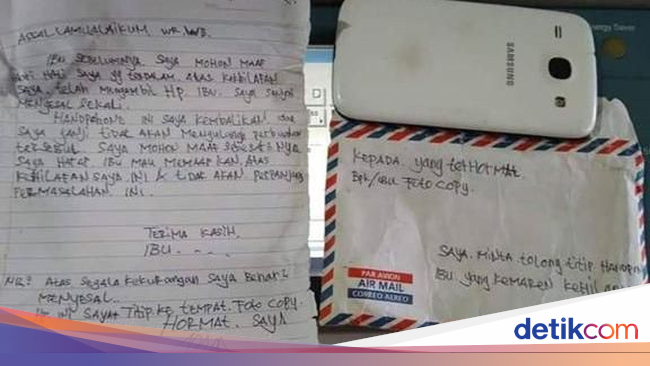 ASSALAMUALAIKUM WR. WB.
IBU SEBELUMNYA SAYA MOHON MAAF
DARI HATI SAYA YG TERDALAM. ATAS KEKHILAFAN
SAYA. TELAH MENGAMBIL HP IBU. SAYA SANGAT
MENYESAL SEKALI.
HANDPHONE INI SAYA KEMBALIKAN DAN
SAYA JANJI TIDAK AKAN MENGULANGI PERBUATAN
TERSEBUT SAYA MOHON MAAF
SAYA HARAP IBU MAU MEMAAFKAN. ATAS
KEHILAFAN SAYA INI & TIDAK AKAN PERPANJANG
PERMASALAHAN INI.
TERIMA KASIH.
IBU. . . .
NB: ATAS SEGALA KEKURANGAN SAYA BENAR2
MENYESAL.
INI SAYA TITIP KE TEMPAT. FOTO COPY.
HORMAT. SAYA
SAMSUNG
KEPADA. yang terHORMAT.
Bpk/ibu FOTO COPY.
SAYA. MINTA tolong titip HANDPHO
IBU. yang KEMAREN
PAR AVION
AIR MAIL
CORREO AEREO
Energy Saver
detikcom